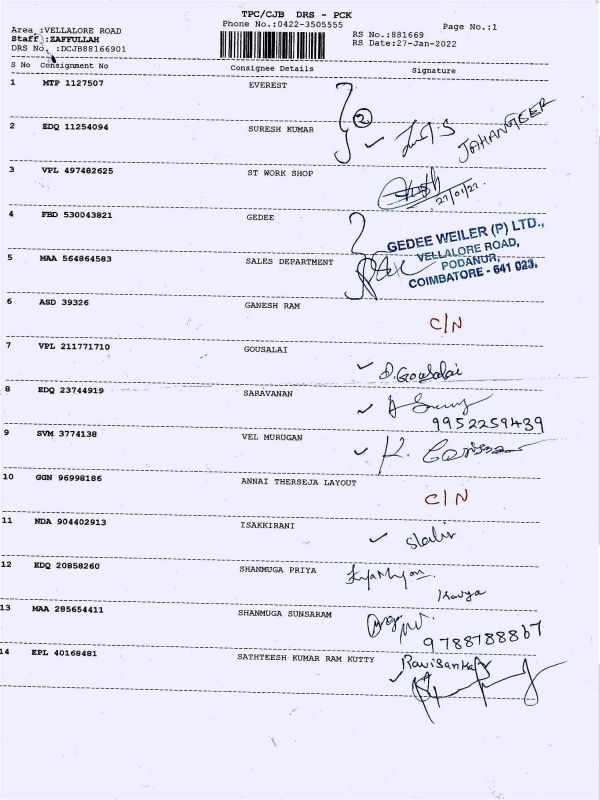 TPC/CJB DRS - PCK
Phone No.:0422-3505555
Page No.:1
Area :VELLALORE ROAD
Staff :ZAFFULLAH
DRS No. :DCJB88166901
RS No.:881669
RS Date:27-Jan-2022
S No Consignment No Consignee Details Signature
1 MTP 1127507 EVEREST
2
2 EDQ 11254094 SURESH KUMAR JAHANGEER
3 VPL 497482625 ST WORK SHOP
27/01/22
4 FBD 530043821 GEDEE
GEDEE WEILER (P) LTD.,
VELLALORE ROAD,
PODANUR,
COIMBATORE - 641 023.
5 MAA 564864583 SALES DEPARTMENT
6 ASD 39326 GANESH RAM
C/N
7 VPL 211771710 GOUSALAI
D. Gousalai
8 EDQ 23744919 SARAVANAN
9952259439
9 SVM 3774138 VEL MURUGAN
10 GGN 96998186 ANNAI THERSEJA LAYOUT
C/N
11 NDA 904402913 ISAKKIRANI
12 EDQ 20858260 SHANMUGA PRIYA
Kavya
13 MAA 285654411 SHANMUGA SUNSARAM
9788788867
14 EPL 40168481 SATHTEESH KUMAR RAM KUTTY
Ravisankar